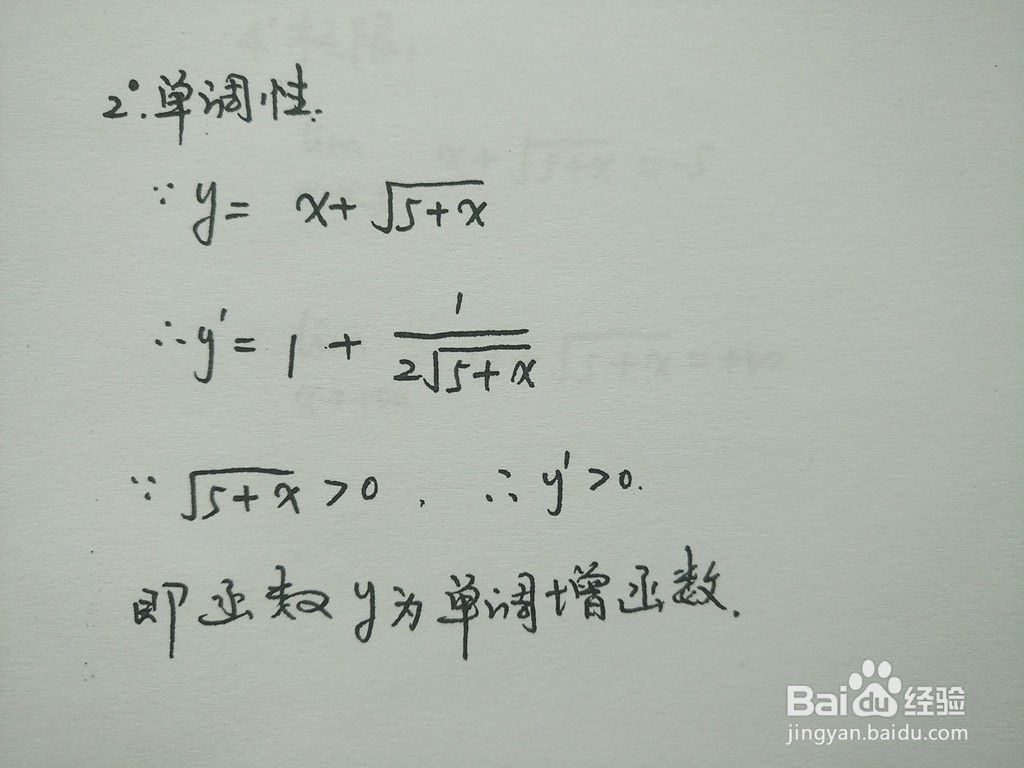 2°.单调性.
∵ y = x + √(5+x)
∴ y' = 1 + 1/(2√(5+x))
∵ √(5+x) > 0 , ∴ y' > 0.
即函数 y 为单调增函数.
Baidu 经验
jingyan.baidu.com